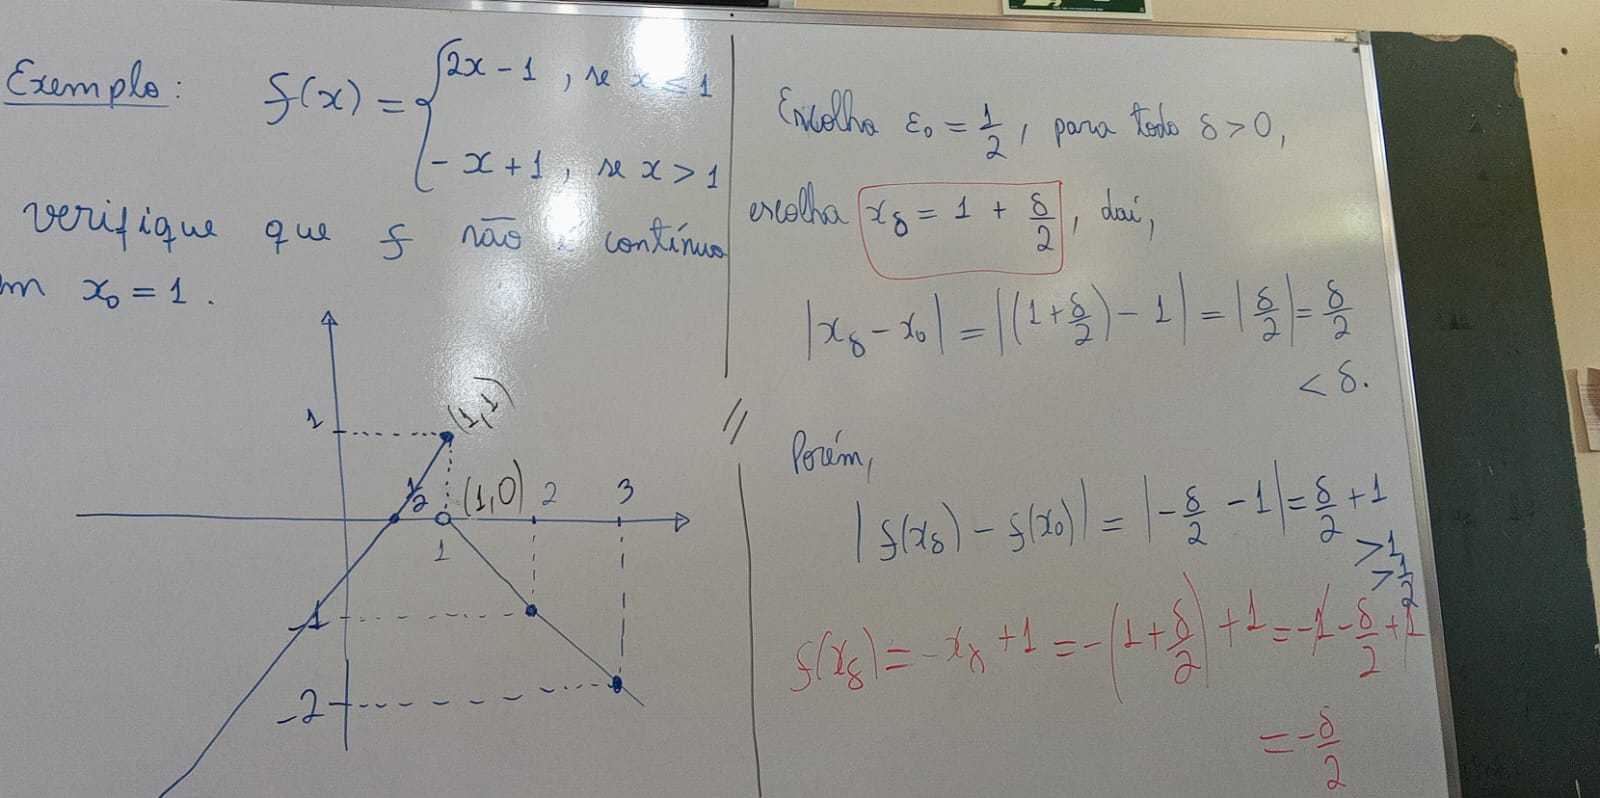 Exemplo: f(x) = { 2x - 1 , se x ≤ 1
- x + 1 , se x > 1
verifique que f não é contínua
em x₀ = 1 .
1
(1,1)
1/2
(1,0)
2
3
1
-1
-2
//
Escolha ε₀ = 1/2 , para todo δ > 0,
escolha x_δ = 1 + δ/2 , daí,
|x_δ - x₀| = |(1 + δ/2) - 1| = |δ/2| = δ/2
< δ.
Porém,
|f(x_δ) - f(x₀)| = |- δ/2 - 1| = δ/2 + 1
> 1
> 1/2
f(x_δ) = - x_δ + 1 = - (1 + δ/2) + 1 = - 1 - δ/2 + 1
= - δ/2